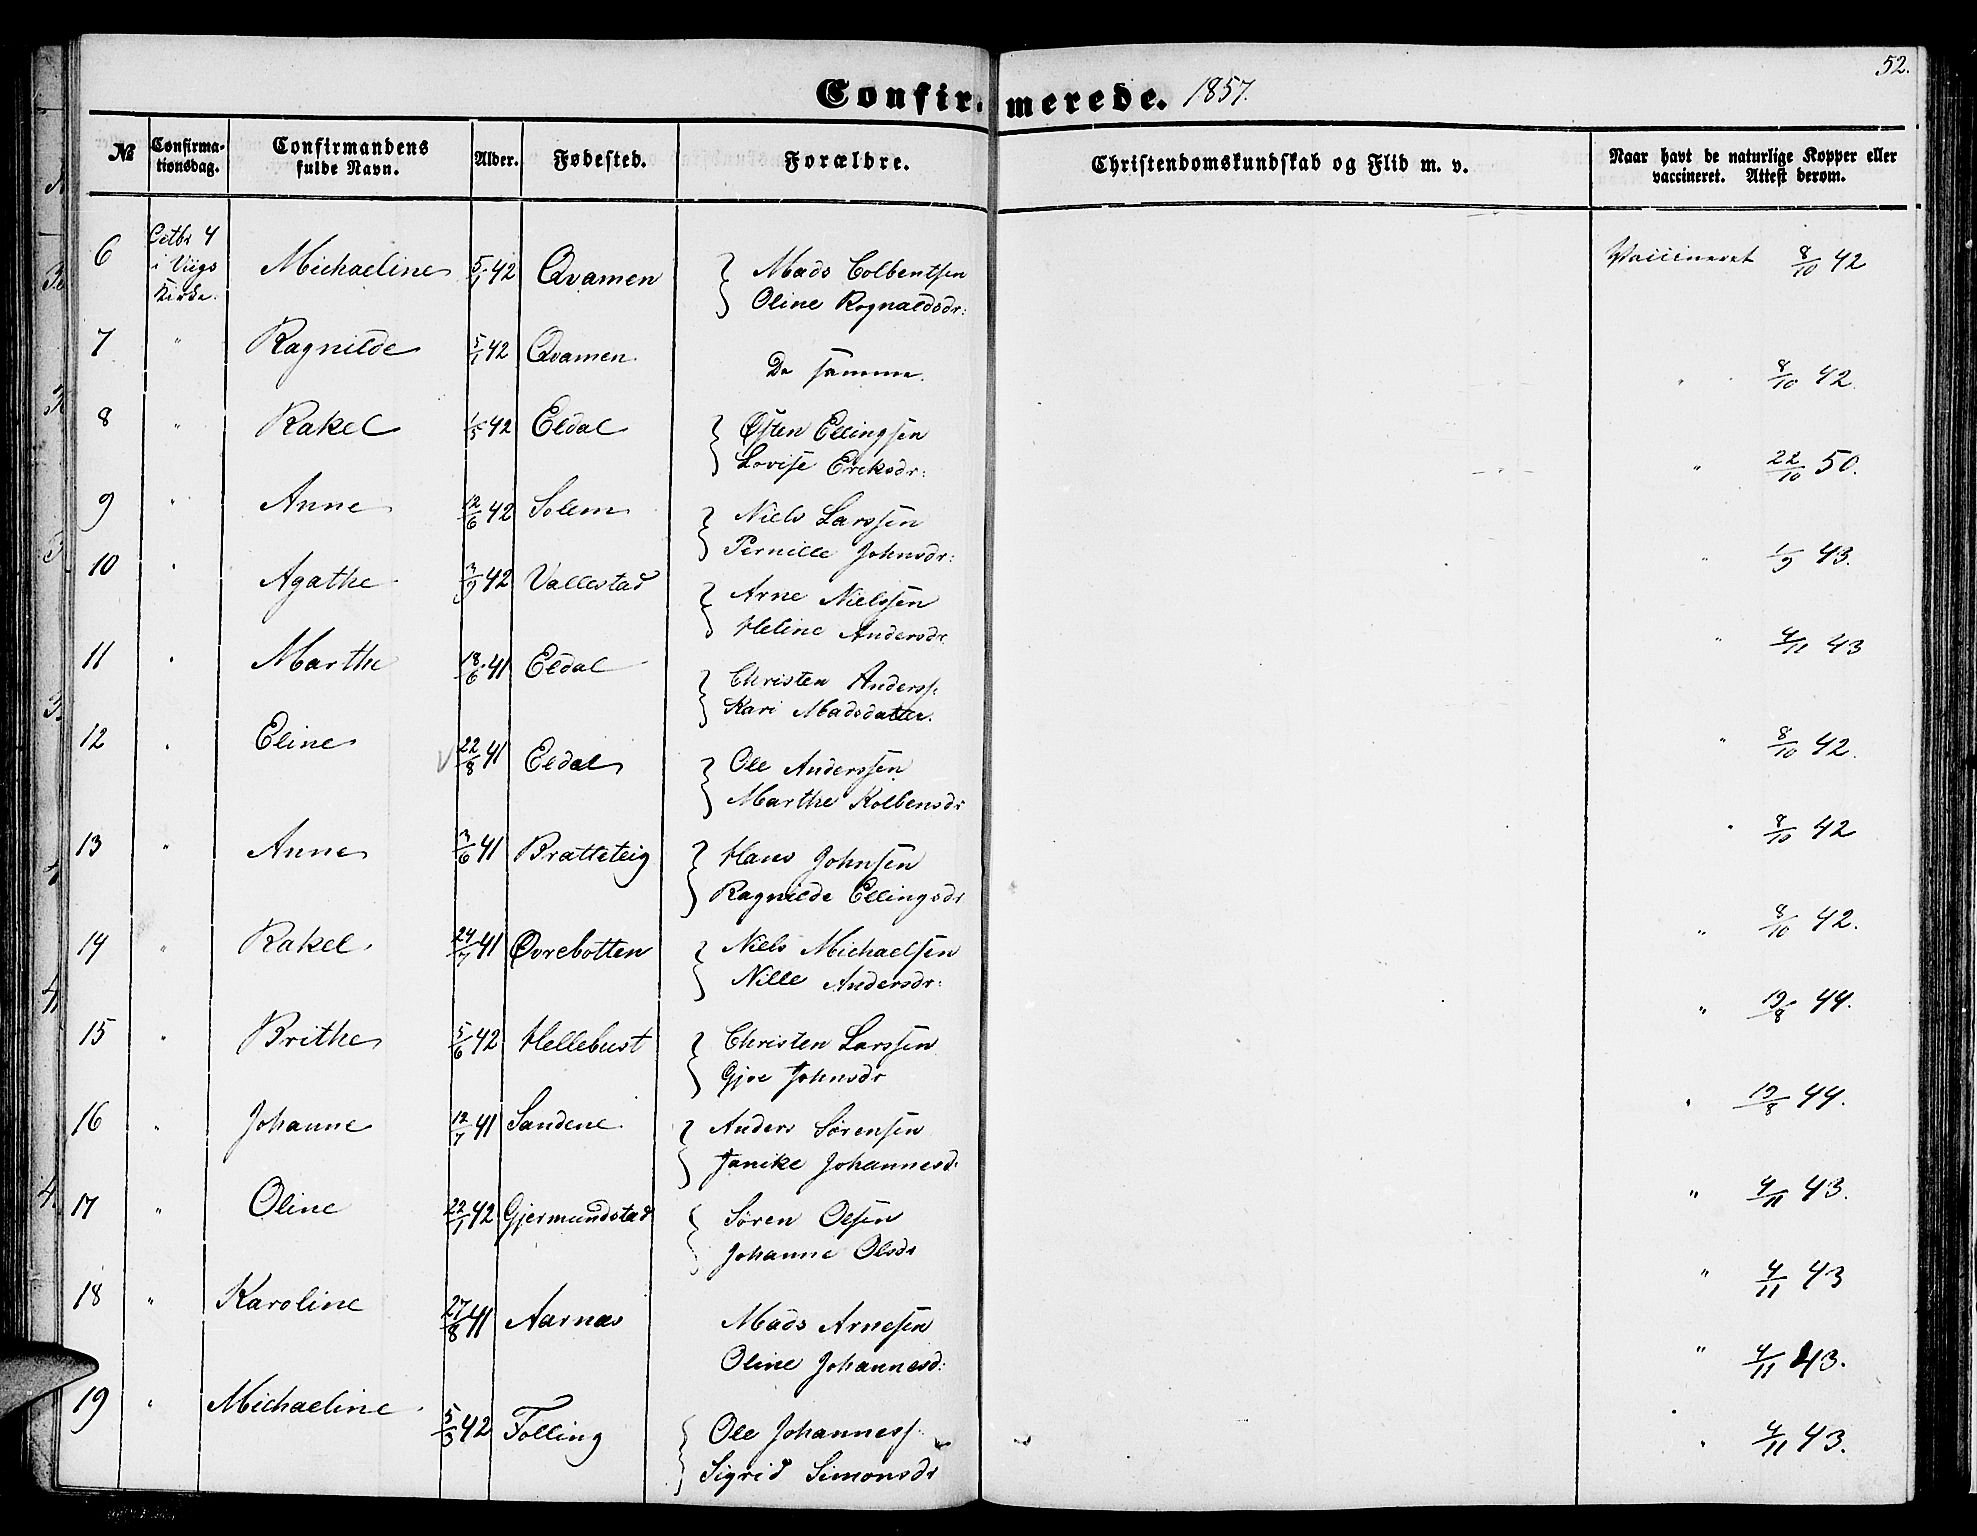 52.
Confirmerede. 1857.
№ Confirmationsdag. Confirmandens fulde Navn. Alder. Fødested. Forældre. Christendomskundskab og Flid m. v. Naar havt de naturlige Kopper eller vaccineret. Attest derom.
6 Octbr 4 i Viigs Kirke. Michaeline 5/1 42 Qvamen Mads Colbentsen Vaccineret 8/10 42
Oline Rognaldsdr:
7 " Ragnilde 5/1 42 Qvamen De samme. " 8/10 42.
8 " Rakel 1/5 42 Eldal Østen Ellingsen " 22/10 50.
Lovise Eriksdr:
9 " Anne 12/6 42 Solem Niels Larssen " 1/9 43.
Pernille Johnsdr:
10 " Agathe 3/9 42 Vallestad Arne Nielssen " 4/11 43
Heline Andersdr
11 " Marthe 18/6 41 Eldal Christen Anderss.
Kari Madsdatter.
12 " Eline 22/8 41 Eldal Ole Anderssen " 8/10 42.
Marthe Kolbensdr
13 " Anne 3/6 41 Bratteteig Hans Johnsen " 8/10 42
Ragnilde Ellingsdr
14 " Rakel 24/7 41 Øvrebotten Niels Michaelsen " 8/10 42.
Nille Andersdr:
15 " Brithe 5/6 42 Hellebust Christen Larssen " 19/8 44.
Gjoe Johnsdr
16 " Johanne 12/7 41 Sandene Anders Sørensen " 19/8 44.
Janike Johannesd:
17 " Oline 22/1 42 Gjermundstad Søren Olsen " 4/11 43.
Johanne Olsdr
18 " Karoline 27/8 41 Aarnæs Mads Arnesen " 4/11 43
Oline Johannesd: " 4/11 43.
19 " Michaeline 5/3 42 Folling Ole Johanness. " 4/11 43.
Sigrid Simonsdr